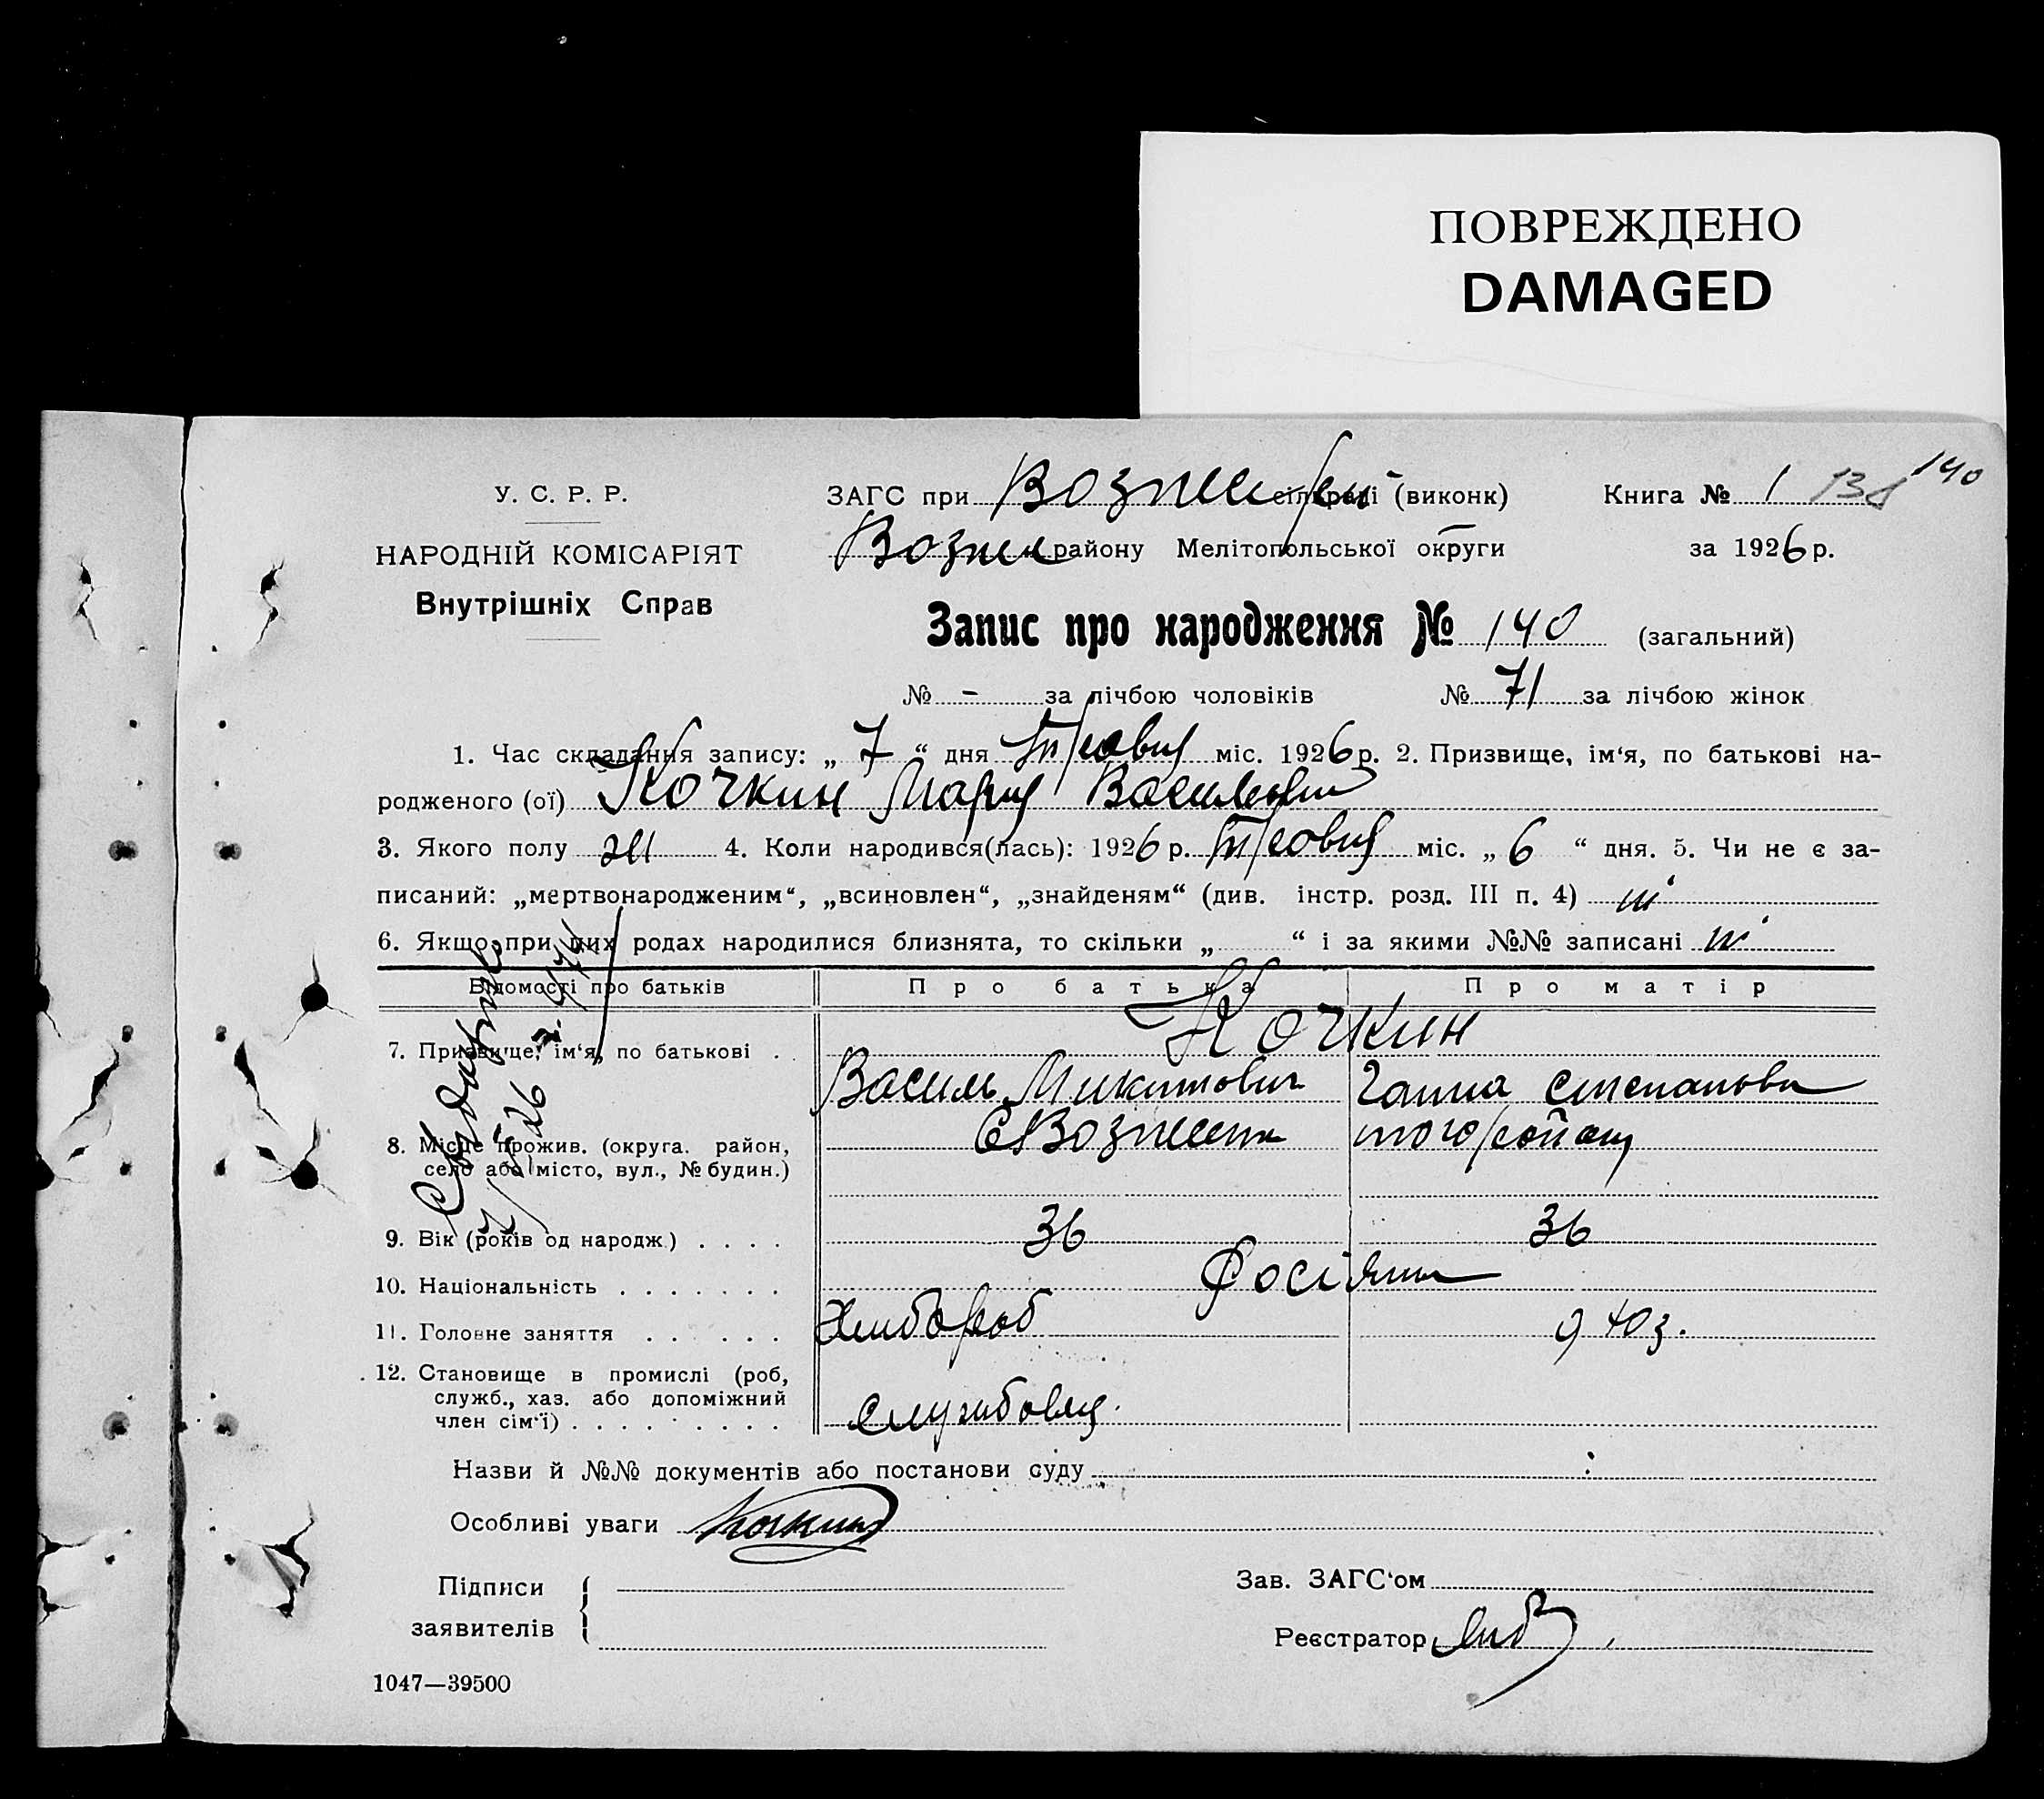 ПОВРЕЖДЕНО
DAMAGED
140
У. С. Р. Р.
НАРОДНІЙ КОМІСАРІЯТ
Внутрішніх Справ
ЗАГС при сільраді (виконк) Книга № 1 138
Возне району Мелітопольської округи за 1926 р.
Запис про народження № 140 (загальний)
№ - за лічбою чоловіків № 71 за лічбою жінок
1. Час складання запису: „ 7 “ дня міс. 1926 р. 2. Призвище, ім‘я, по батькові на-
родженого (ої) Кочкин Мария
3. Якого полу жи 4. Коли народився(лась): 1926 р. міс. „ 6 “ дня. 5. Чи не є за-
писаний: „мертвонародженим“, „всиновлен“, „знайденям“ (див. інстр. розд. III п. 4) ні
6. Якщо при цих родах народилися близнята, то скільки „ “ і за якими №№ записані ні
Відомості про батьків Про батька Про матір
7. Призвище, ім‘я, по батькові . . Кочкин
Василь Микитович Ганна Степановн
8. Місце прожив. (округа. район,
село або місто, вул., № будин.)
9. Вік (років од народж.) . . . . 36 36
10. Національність . . . . . . . Росіяни
11. Головне заняття . . . . . . Хлибороб
12. Становище в промислі (роб,
служб., хаз. або допоміжний
член сім‘ї) . . . . . . . . .
Назви й №№ документів або постанови суду
Особливі уваги Кочкин
Підписи
заявителів
Зав. ЗАГС‘ом
Реєстратор
1047—39500